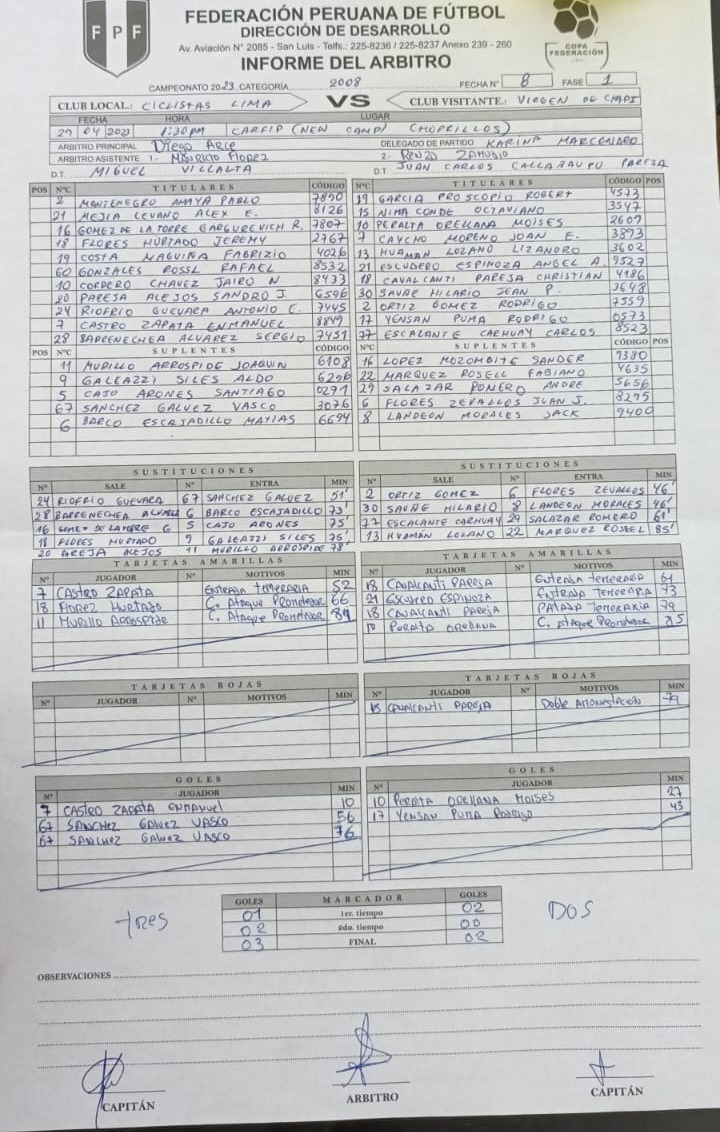 FPF
FEDERACIÓN PERUANA DE FÚTBOL
DIRECCIÓN DE DESARROLLO
Av. Aviación N° 2085 - San Luis - Telfs.: 225-8236 / 225-8237 Anexo 239 - 260
INFORME DEL ARBITRO
COPA FEDERACIÓN
CAMPEONATO 2023 CATEGORÍA 2008 FECHA N° 8 FASE 1
CLUB LOCAL: CICLISTAS LIMA VS CLUB VISITANTE.: VIRGEN DE CHAPI
FECHA HORA LUGAR
29 04 2023 1:30PM CARFIP (NEW CAMP) (CHORRILLOS)
ARBITRO PRINCIPAL Diego Arce DELEGADO DE PARTIDO KARINA
ARBITRO ASISTENTE 1. MAURICIO FLOREZ 2. RENZO ZAMUDIO
D.T. MIGUEL VILLALTA D.T. JUAN CARLOS CALLAÑAUPU PAREJA
POS N°C TITULARES CÓDIGO N°C TITULARES CÓDIGO POS
2 MONTENEGRO AMAYA PABLO 7890 19 GARCIA PROSCOPIO ROBERT 4573
21 MEJIA LEVANO ALEX E. 8126 15 NIMA CONDE OCTAVIANO 3547
16 GOMEZ DE LA TORRE GARGUREVICH R. 7807 10 PERALTA ORELLANA MOISES 2609
18 FLORES HURTADO JEREMY 2767 7 CAYCHO MORENO JOAN E. 3893
19 COSTA MAGUIÑA FABRIZIO 4026 13 HUAMAN LOZANO LIZANDRO 3602
60 GONZALES ROSSL RAFAEL 8532 21 ESCUDERO ESPINOZA ANGEL A. 9527
10 CORDERO CHAVEZ JAIRO N 8433 18 CAVALCANTI PAREJA CHRISTIAN 4186
20 PAREJA ALEJOS SANDRO J. 6596 30 SAUÑE HILARIO JEAN P. 3648
24 RIOFRIO GUEVARA ANTONIO E. 7445 2 ORTIZ GOMEZ RODRIGO 7559
7 CASTRO ZAPATA ENMANUEL 8849 17 YENSAN PUMA RODRIGO 0573
28 BARRENECHEA ALVAREZ SERGIO 7451 77 ESCALANTE CARHUAY CARLOS 8523
POS N°C SUPLENTES CÓDIGO N°C SUPLENTES CÓDIGO POS
11 MURILLO ARROSPIDE JOAQUIN 6108 16 LOPEZ MOZOMBITE SANDER 9380
9 GALEAZZI SILES ALDO 6296 22 MARQUEZ ROSELL FABIANO 4635
5 CAJO ARONES SANTIAGO 0271 29 SALAZAR ROMERO ANDRE 5656
67 SANCHEZ GALVEZ VASCO 3076 6 FLORES ZEVALLOS JUAN J. 8295
6 BARCO ESCAJADILLO MATIAS 6694 8 LANDEON MORALES JACK 9400
SUSTITUCIONES SUSTITUCIONES
N° SALE N° ENTRA MIN N° SALE N° ENTRA MIN
24 RIOFRIO GUEVARA 67 SANCHEZ GALVEZ 51' 2 ORTIZ GOMEZ 6 FLORES ZEVALLOS 46'
28 BARRENECHEA ALVAREZ 6 BARCO ESCAJADILLO 73' 30 SAUÑE HILARIO 8 LANDEON MORALES 46'
16 GOMEZ DE LA TORRE G 5 CAJO ARONES 75' 77 ESCALANTE CARHUAY 29 SALAZAR ROMERO 61'
18 FLORES HURTADO 9 GALEAZZI SILES 75' 13 HUAMÁN LOZANO 22 MARQUEZ ROSELL 85'
20 PAREJA ALEJOS 11 MURILLO ARROSPIDE 78'
TARJETAS AMARILLAS TARJETAS AMARILLAS
N° JUGADOR N° MOTIVOS MIN N° JUGADOR N° MOTIVOS MIN
7 CASTRO ZAPATA Entrada temeraria 52 18 CAVALCANTI PAREJA Entrada temeraria 61
18 Florez Hurtado C. Ataque Prometedor 66 21 ESCUDERO ESPINOZA Entrada Temeraria 73
11 Murillo Arrospide C. Ataque Prometedor 89 18 CAVALCANTI PAREJA PATADA TEMERARIA 79
10 Peralta Orellana C. Ataque Prometedor 85
TARJETAS ROJAS TARJETAS ROJAS
N° JUGADOR N° MOTIVOS MIN N° JUGADOR N° MOTIVOS MIN
18 CAVALCANTI PAREJA Doble Amonestacion 79
GOLES GOLES
N° JUGADOR MIN N° JUGADOR MIN
7 CASTRO ZAPATA ENMANUEL 10 10 Peralta Orellana Moises 27
67 SANCHEZ GALVEZ VASCO 56 17 YENSAN PUMA RODRIGO 43
67 SANCHEZ GALVEZ VASCO 76
GOLES MARCADOR GOLES
01 1er. tiempo 02
tres 02 2do. tiempo 00 DOS
03 FINAL 02
OBSERVACIONES
CAPITÁN ARBITRO CAPITÁN